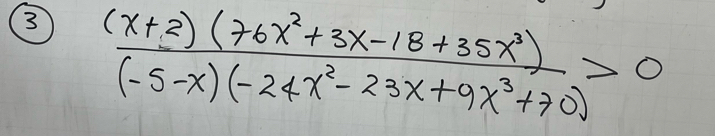 ③ (x+2)(76x²+3x-18+35x³)
(-5-x)(-24x²-23x+9x³+70) > 0